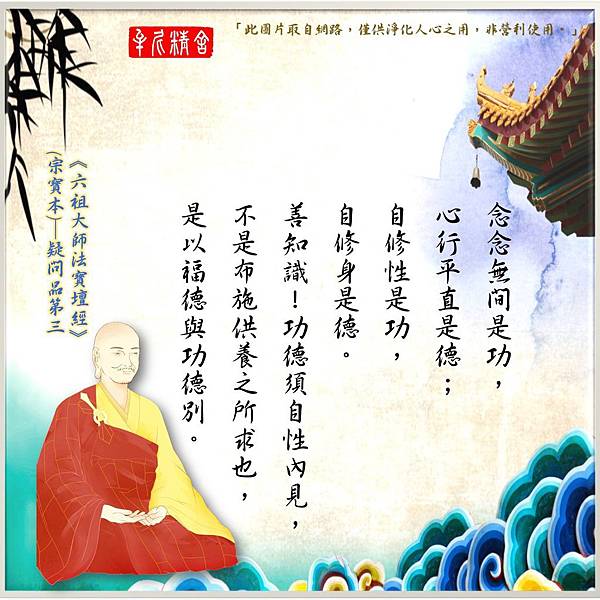 「此圖片取自網路，僅供淨化人心之用，非營利使用。」
精舍
念念無間是功，
心行平直是德；
自修性是功，
自修身是德。
善知識！功德須自性內見，
不是布施供養之所求也，
是以福德與功德別。
《六祖大師法寶壇經》
(宗寶本)—疑問品第三